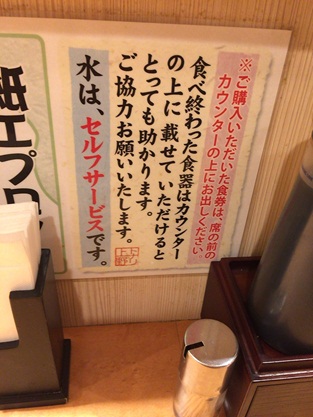 ※ご購入いただいた食券は、席の前の
カウンターの上にお出しください。
食べ終わった食器はカウンター
の上に載せていただけると
とっても助かります。
ご協力お願いいたします。
水は、セルフサービスです。
紙エプロ